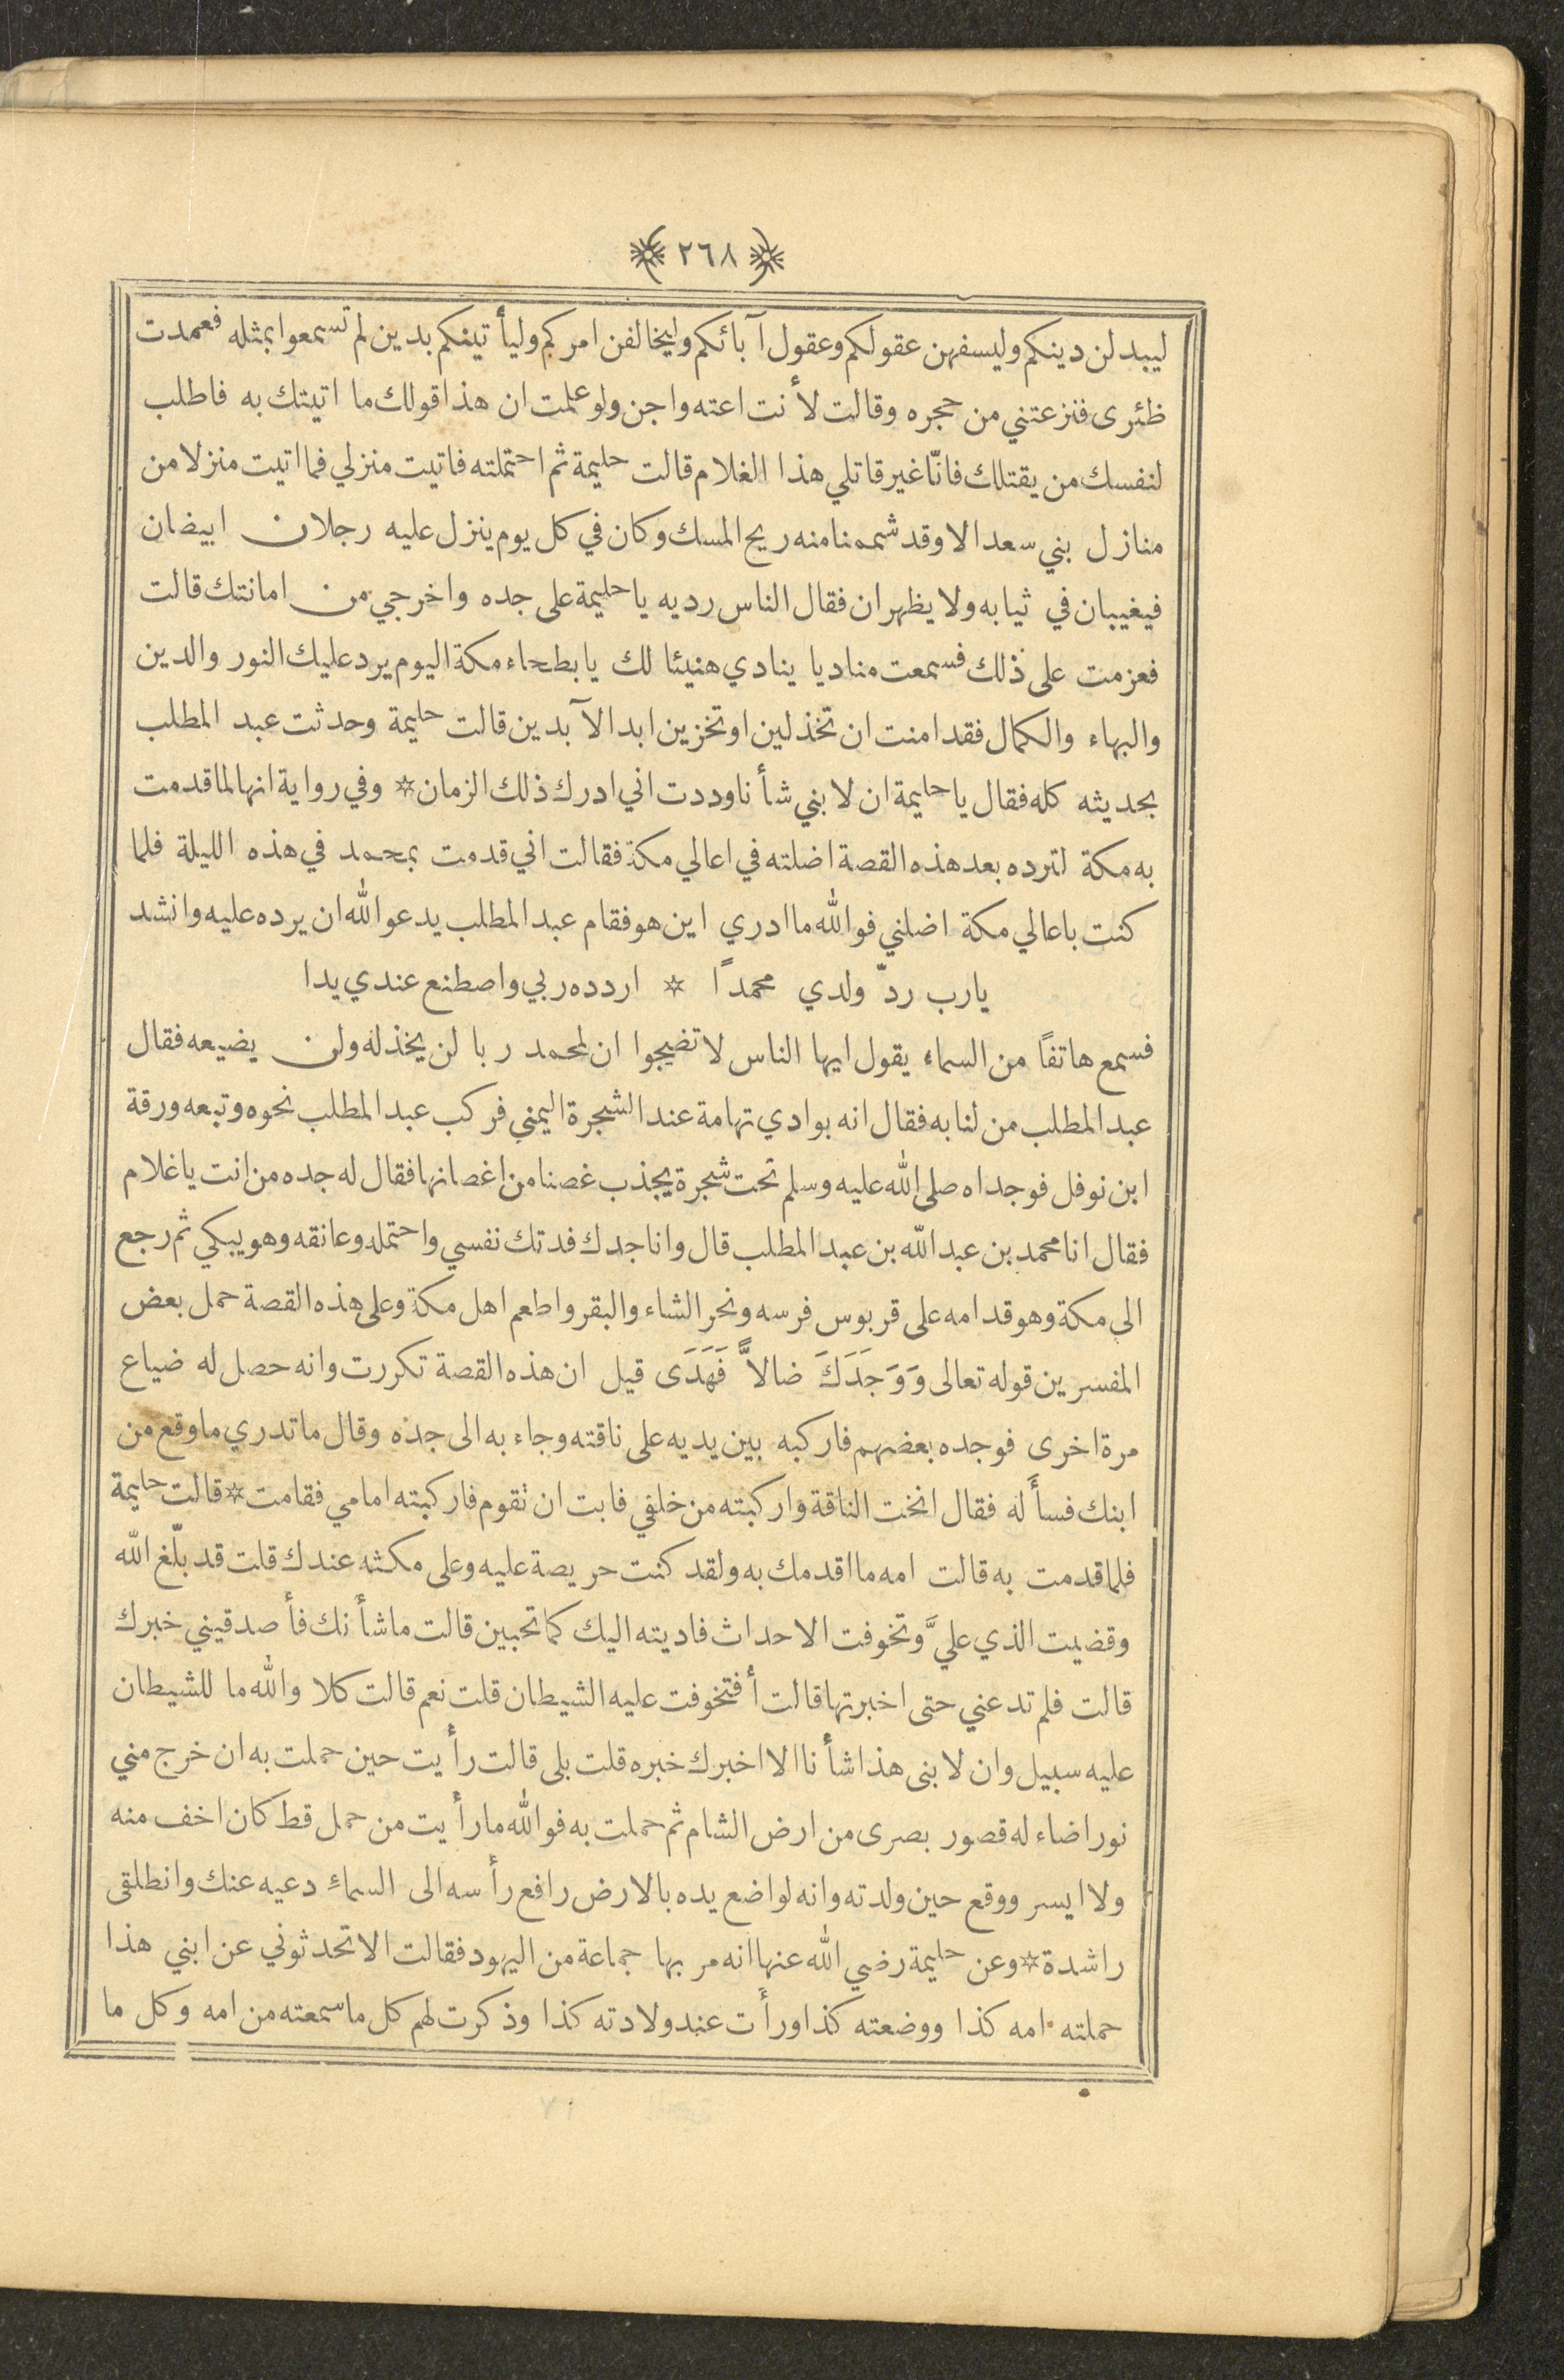 ﴿ ٢٦٨ ﴾
ليبدلن دينكم وليسفهن عقولكم وعقول آبائكم وليخالفن امركم وليأتينكم بدين لم تسمعوا بمثله فعمدت
ظئرى فنزعتني من حجره وقالت لأنت اعته واجن ولو علمت ان هذا قولك ما اتيتك به فاطلب
لنفسك من يقتلك فانّا غير قاتلي هذا الغلام قالت حليمة ثم احتملته فاتيت منزلي فما اتيت منزلا من
منازل بني سعد الا وقد شممنا منه ريح المسك وكان في كل يوم ينزل عليه رجلان ابيضان
فيغيبان في ثيابه ولا يظهران فقال الناس رديه يا حليمة على جده واخرجي من امانتك قالت
فعزمت على ذلك فسمعت مناديا ينادي هنيئا لك يا بطحاء مكة اليوم يرد عليك النور والدين
والبهاء والكمال فقد امنت ان تخذلين او تخزين ابد الآبدين قالت حليمة وحدثت عبد المطلب
بحديثه كله فقال يا حليمة ان لابني شأنا وددت اني ادرك ذلك الزمان * وفي رواية انها لما قدمت
به مكة لترده بعد هذه القصة اضلته في اعالي مكة فقالت اني قدمت بمحمد في هذه الليلة فلما
كنت باعالي مكة اضلني فوالله ما ادري اين هو فقام عبد المطلب يدعو الله ان يرده عليه وانشد
يارب ردّ ولدي محمدًا * اردده ربي واصطنع عندي يدا
فسمع هاتفًا من السماء يقول ايها الناس لا تضيجوا ان لمحمد ربا لن يخذله ولن يضيعه فقال
عبد المطلب من لنا به فقال انه بوادي تهامة عند الشجرة اليمني فركب عبد المطلب نحوه وتبعه ورقة
ابن نوفل فوجداه صلى الله عليه وسلم تحت شجرة يجذب غصنا من اغصانها فقال له جده من انت يا غلام
فقال انا محمد بن عبد الله بن عبد المطلب قال وانا جدك فدتك نفسي واحتمله وعانقه وهو يبكي ثم رجع
الى مكة وهو قدامه على قربوس فرسه ونحر الشاء والبقر واطعم اهل مكة وعلى هذه القصة حمل بعض
المفسرين قوله تعالى وَوَجَدَكَ ضالاًّ فَهَدَى قيل ان هذه القصة تكررت وانه حصل له ضياع
مرة اخرى فوجده بعضهم فاركبه بين يديه على ناقته وجاء به الى جده وقال ما تدري ما وقع من
ابنك فسأَله فقال انخت الناقة واركبته من خلفي فابت ان تقوم فاركبته امامي فقامت * قالت حليمة
فلما قدمت به قالت امه ما اقدمك به ولقد كنت حريصة عليه وعلى مكثه عندك قلت قد بلّغ الله
وقضيت الذي عليَّ وتخوفت الاحداث فاديته اليك كما تحبين قالت ما شأنك فأصدقيني خبرك
قالت فلم تدعني حتى اخبرتها قالت أفتخوفت عليه الشيطان قلت نعم قالت كلا والله ما للشيطان
عليه سبيل وان لابنى هذا شأنا الا اخبرك خبره قلت بلى قالت رأيت حين حملت به ان خرج مني
نور اضاء له قصور بصرى من ارض الشام ثم حملت به فوالله ما رأيت من حمل قط كان اخف منه
ولا ايسر ووقع حين ولدته وانه لواضع يده بالارض رافع رأسه الى السماء دعيه عنك وانطلقى
راشدة * وعن حليمة رضي الله عنها انه مر بها جماعة من اليهود فقالت الا تحدثوني عن ابني هذا
حملته امه كذا ووضعته كذا ورأَت عند ولادته كذا وذكرت لهم كل ما سمعته من امه وكل ما